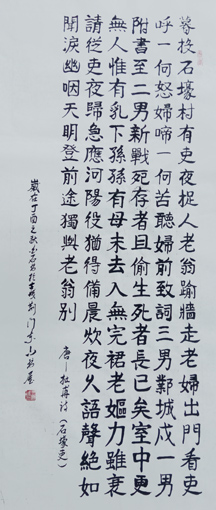 暮投石壕村有吏夜捉人老翁踰牆走老婦出門看吏
呼一何怒婦啼一何苦聽婦前致詞三男鄴城戍一男
附書至二男新戰死存者且偷生死者長已矣室中更
無人惟有乳下孫孫有母未去入無完裙老嫗力雖衰
請從吏夜歸急應河陽役猶得備晨炊夜久語聲絕如
聞淚幽咽天明登前途獨與老翁別
唐一杜甫詩《石壕吏》
歲在丁酉之秋